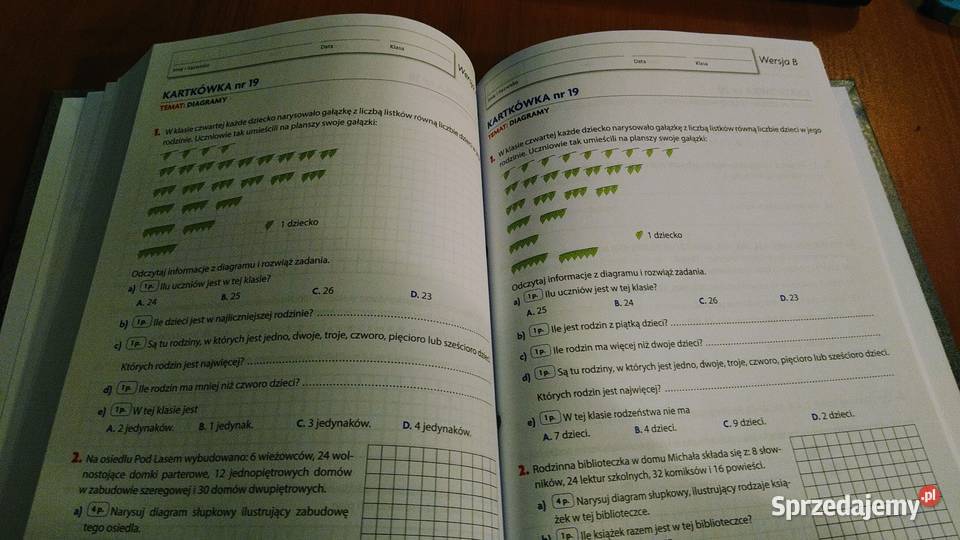 Imię i nazwisko
Data
Klasa
KARTKÓWKA nr 19
TEMAT: DIAGRAMY
1. W klasie czwartej każde dziecko narysowało gałązkę z liczbą listków równą liczbie dzieci w
rodzinie. Uczniowie tak umieścili na planszy swoje gałązki:
1 dziecko
Odczytaj informacje z diagramu i rozwiąż zadania.
a) 1 p. Ilu uczniów jest w tej klasie?
A. 24 B. 25 C. 26 D. 23
b) 1 p. Ile dzieci jest w najliczniejszej rodzinie?
c) 1 p. Są tu rodziny, w których jest jedno, dwoje, troje, czworo, pięcioro lub sześcioro dzieci.
Których rodzin jest najwięcej?
d) 1 p. Ile rodzin ma mniej niż czworo dzieci?
e) 1 p. W tej klasie jest
A. 2 jedynaków. B. 1 jedynak. C. 3 jedynaków. D. 4 jedynaków.
2. Na osiedlu Pod Lasem wybudowano: 6 wieżowców, 24 wol-
nostojące domki parterowe, 12 jednopiętrowych domów
w zabudowie szeregowej i 30 domów dwupiętrowych.
a) 4 p. Narysuj diagram słupkowy ilustrujący zabudowę
tego osiedla.
Imię i nazwisko
Data
Klasa
Wersja B
KARTKÓWKA nr 19
TEMAT: DIAGRAMY
1. W klasie czwartej każde dziecko narysowało gałązkę z liczbą listków równą liczbie dzieci w jego
rodzinie. Uczniowie tak umieścili na planszy swoje gałązki:
1 dziecko
Odczytaj informacje z diagramu i rozwiąż zadania.
a) 1 p. Ilu uczniów jest w tej klasie?
A. 25 B. 24 C. 26 D. 23
b) 1 p. Ile jest rodzin z piątką dzieci?
c) 1 p. Ile rodzin ma więcej niż dwoje dzieci?
d) 1 p. Są tu rodziny, w których jest jedno, dwoje, troje, czworo, pięcioro lub sześcioro dzieci.
Których rodzin jest najwięcej?
e) 1 p. W tej klasie rodzeństwa nie ma
A. 7 dzieci. B. 4 dzieci. C. 9 dzieci. D. 2 dzieci.
2. Rodzinna biblioteczka w domu Michała składa się z: 8 słow-
ników, 24 lektur szkolnych, 32 komiksów i 16 powieści.
a) 4 p. Narysuj diagram słupkowy, ilustrujący rodzaje ksią-
żek w tej biblioteczce.
b) 1 p. Ile książek razem jest w tej biblioteczce?
Sprzedajemy.pl